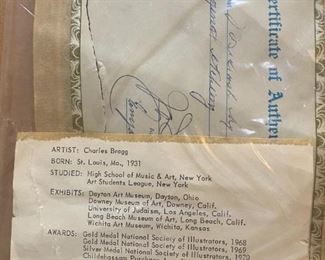 Certificate of Authen
original etching
ARTIST: Charles Bragg
BORN: St. Louis, Mo., 1931
STUDIED: High School of Music & Art, New York
Art Students League, New York
EXHIBITS: Dayton Art Museum, Dayton, Ohio
Downey Museum of Art, Downey, Calif.
University of Judaism, Los Angeles, Calif.
Long Beach Museum of Art, Long Beach, Calif.
Wichita Art Museum, Wichita, Kansas
AWARDS: Gold Medal National Society of Illustrators, 1968
Gold Medal National Society of Illustrators, 1969
Silver Medal National Society of Illustrators, 1970